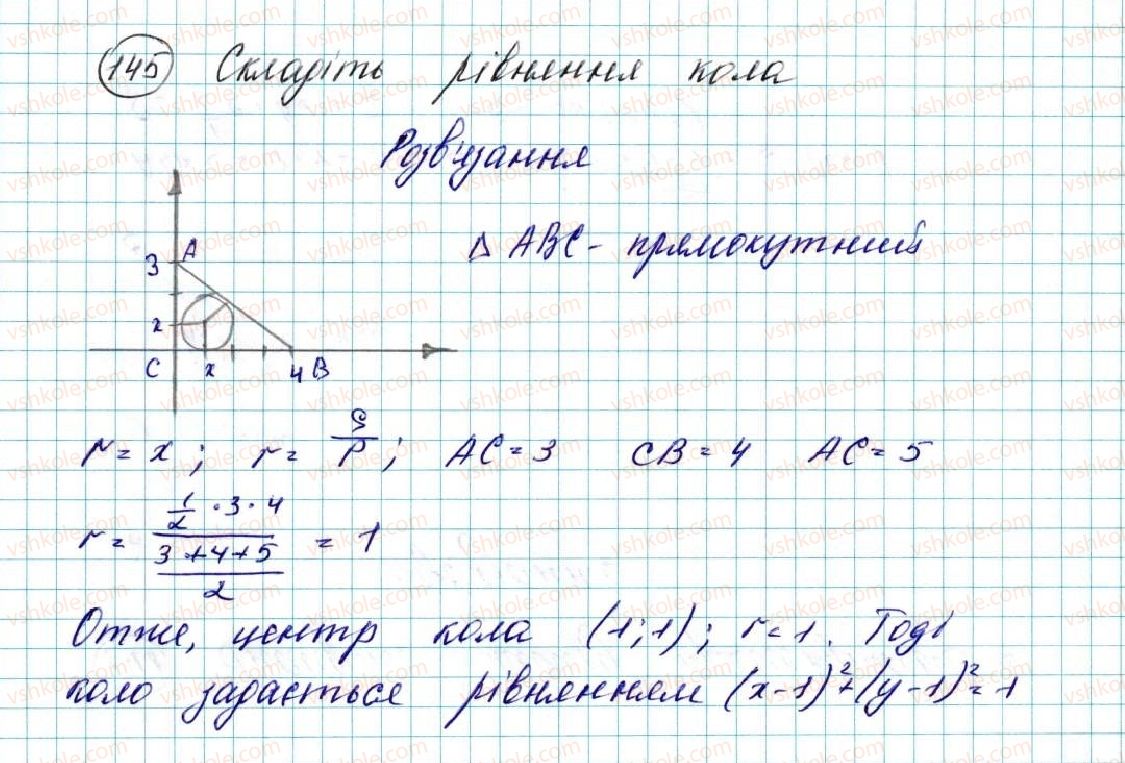 145 Складіть рівняння кола
Розв'язання
3 A
Δ ABC - прямокутний
x
C x 4 B
r = x; r = S/P; AC = 3 CB = 4 AC = 5
r = (1/2 · 3 · 4)/((3+4+5)/2) = 1
Отже, центр кола (1;1); r = 1. Тоді
коло задається рівнянням (x-1)²+(y-1)²=1